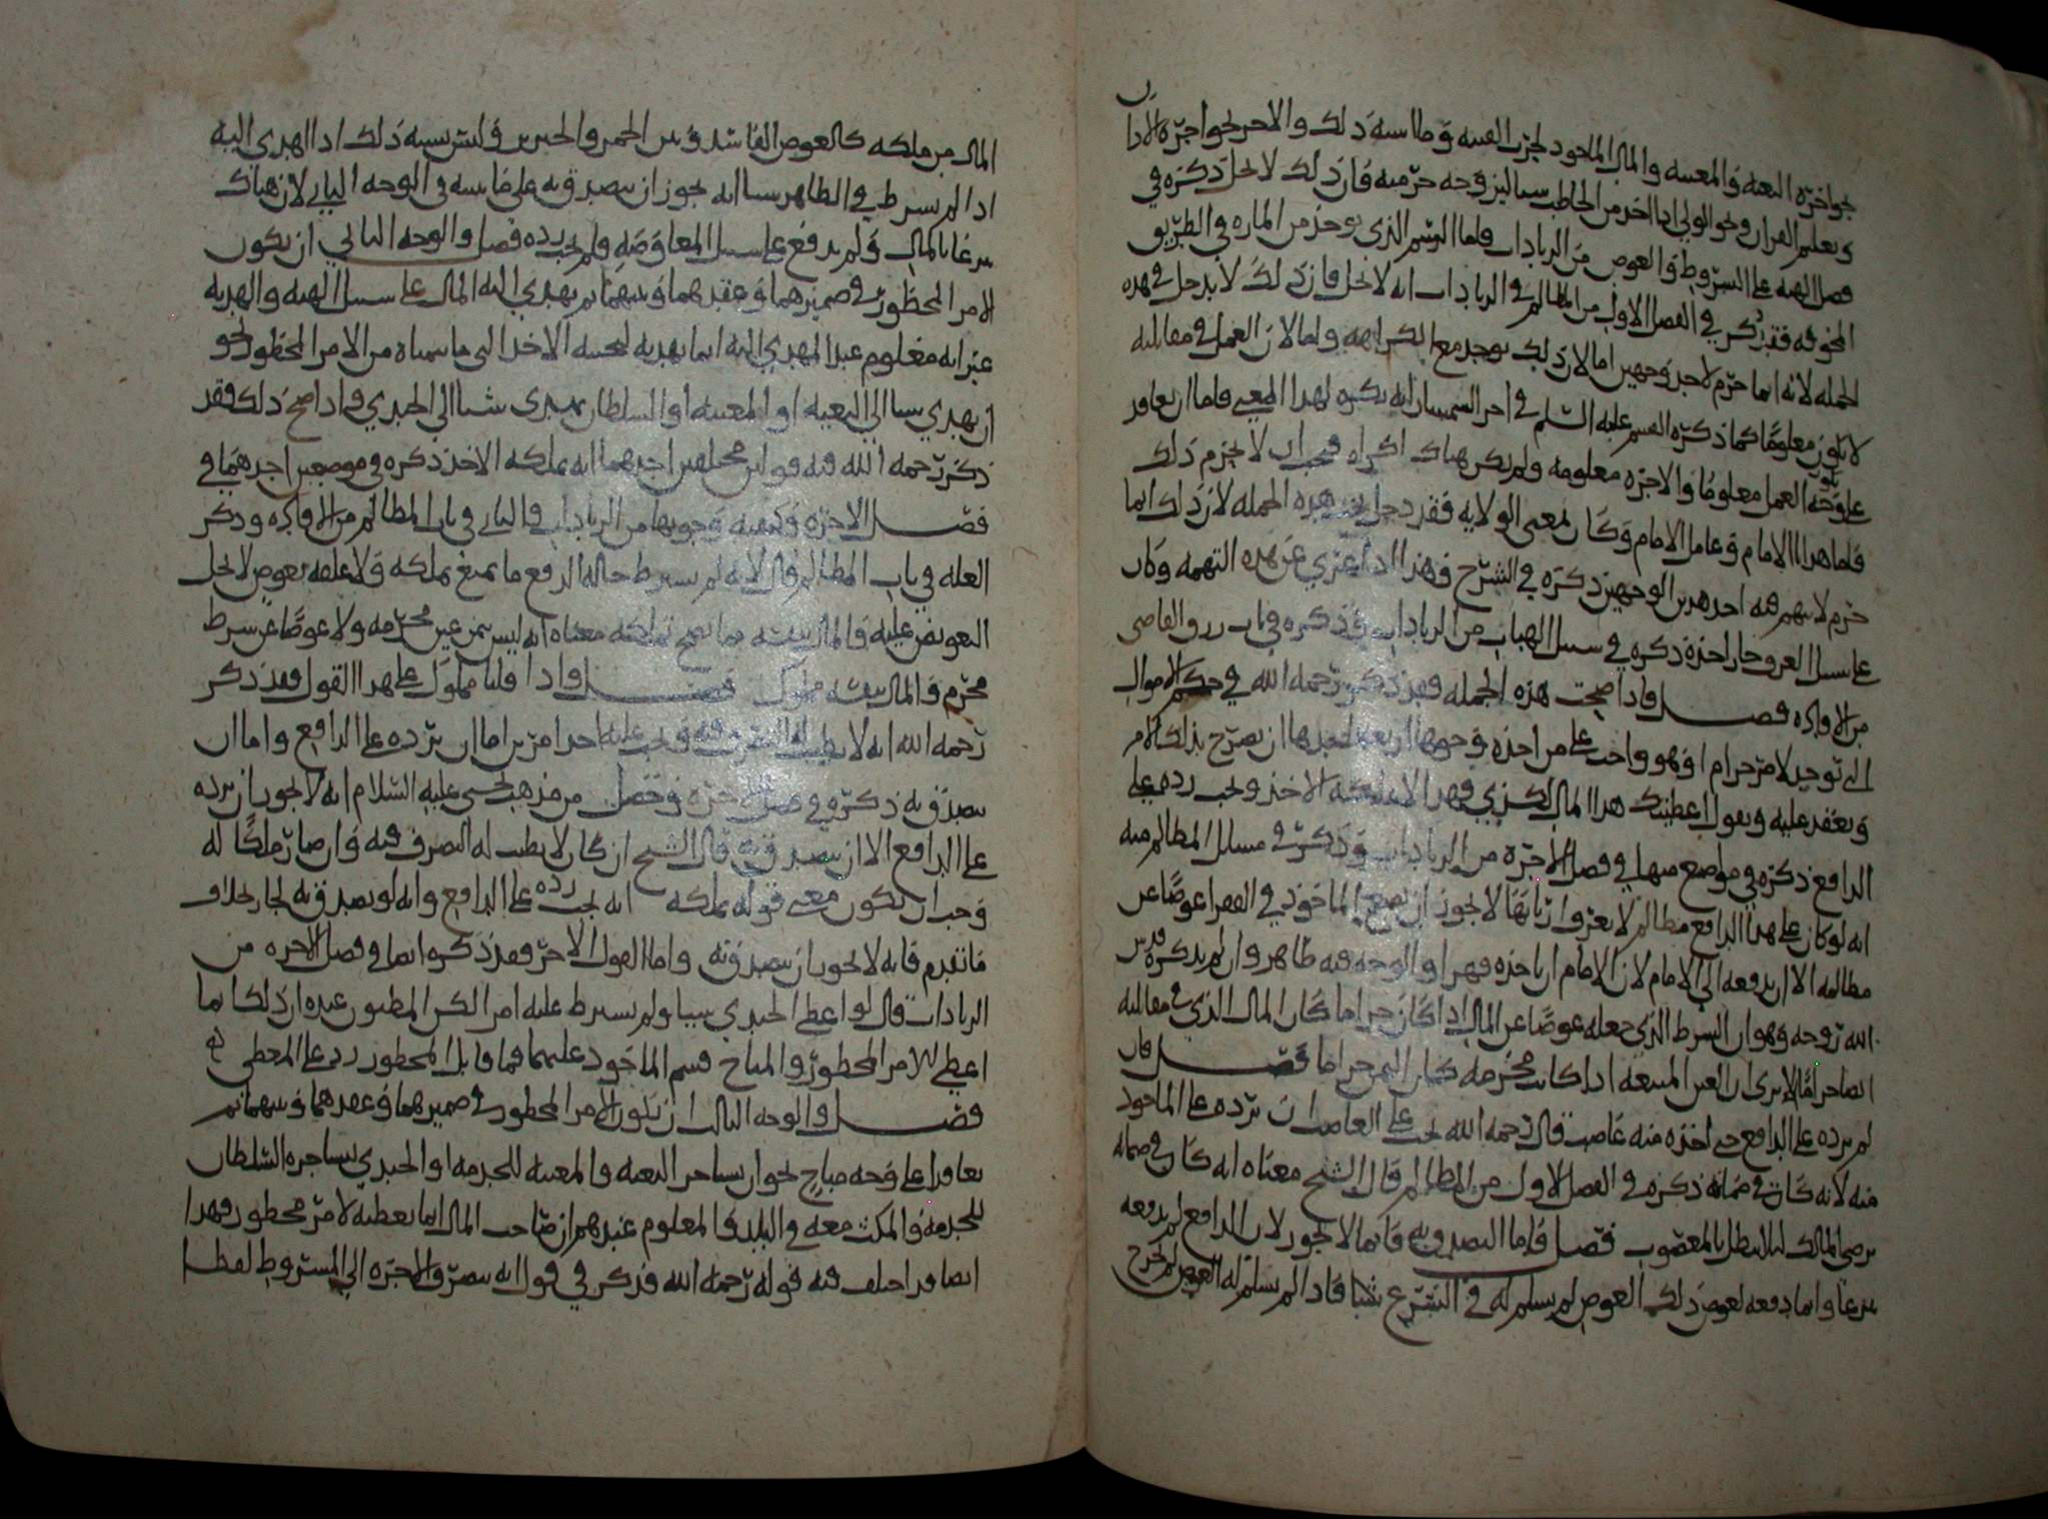 نحو اجره البغيه والمغنيه والمال الماخوذ لحرب الفئه وما اشبه ذلك والاخر نحو اجره الاذان
وتعليم القران ونحو الولي اذا اخذ من الخاطب شيئا ليزوجه حرمته فان ذلك لا يحل ذكره في
فصل الهبه على الشروط والعوض من الزيادات فاما الرسم الذي يوخذ من الماره في الطريق
المخوفه فقد ذكر في الفصل الاول من المظالم في الزيادات انه لا يحل فان ذلك لا يدخل في هذه
الجمله لانه انما حرم لاحد وجهين اما لان ذلك يوجد مع الكراهه واما لان العمل في مقابلته
لا يكون معلوما كما ذكره القسم عليه السلم في اجر السمسار انه يكره لهذا المعنى فاما ان تعاقد
على وجه يكون العمل معلوما والاجره معلومه ولم يكن هناك اكراه فيجب ان لا يحرم ذلك
فاما هدايا الامام وعامل الامام وكان لمعنى الولايه فقد دخل تحت هذه الجمله لان ذلك انما
حرم لانهم فيه احد هذين الوجهين ذكره في الشرح فهذا اذا عري عن هذه التهمه وكان
على سبيل العرو جاز اخذه ذكره في سبيل الهبات من الزيادات وذكره في باب رزق القاضي
من الافاده فصل واذا صحت هذه الجمله فقد ذكر رحمه الله في حكم الاموال
التي توخذ لامر حرام او هو واجب على من اخذه وجوها اربعه احدها ان يصرح بذلك الامر
ويعقد عليه ويقول اعطيتك هذا المال لكذي فهذا لا يملكه الاخذ ويجب رده على
الدافع ذكره في مواضع منها في فصل الاجره من الزيادات وذكر في مسائل المظالم منه
انه لو كان على هذا الدافع مظالم لا يعرف اربابها لا يجوز ان يضع الماخوذ في الفقرا عوضا عن
مظالمه الا ان يدفعه الى الامام لان الامام ان ياخذه قهرا والوجه فيه ظاهر وان لم يذكره قدس
الله روحه وهو ان الشرط الذي جعله عوضا عن المال اذا كان حراما كان المال الذي في مقابلته
ايضا حراما الا ترى ان العين المبيعه اذا كانت محرمه كان الثمن حراما فصل فان
لم يرده على الدافع حتى اخذه منه غاصب قال رحمه الله يجب على الغاصب ان يرده على الماخوذ
منه لانه كان في ضمانه ذكره في الفصل الاول من المظالم قال الشيخ معناه انه كان في ضمانه
برضى المالك لئلا يبطل بالمغصوب فصل فاما التصدق به فانما لا يجوز لان الدافع لم يدفعه
تبرعا وانما دفعه لعوض ذلك العوض لم يسلم له في الشرع شيئا فاذا لم يسلم له العوض لم يخرج
المال من ملكه كالعوض الفاسد في ثمن الخمر والخنزير وليس يشبه ذلك اذا اهدى اليه
اذا لم يشرط في الظاهر شيئا انه يجوز ان يتصدق به على ما نبينه في الوجه الثاني لان هناك
تبرعا بالمال ولم يدفع على سبيل المعاوضه فلم يجب رده فصل والوجه الثاني ان يكون
الامر المحظور في ضميرهما وعقدهما ونيتهما ثم يهدي اليه المال على سبيل الهبه والهديه
غير انه معلوم عند المهدي اليه انما يهديه لمحبته الاخذ الى ما سماه من الامر المحظور نحو
ان يهدي شيئا الى البغيه او المغنيه او السلطان يهدي شيئا الى الجندي فاذا صح ذلك فقد
ذكر رحمه الله فيه قولين مختلفين احدهما انه يملكه الاخذ ذكره في موضعين احدهما في
فصل الاجره وكيفيه وجوبها من الزيادات والثاني في باب المظالم من الافاده وذكر
العله في باب المظالم قال لانه لم يشرط حاله الدفع ما يمنع تملكه ولا علقه بعوض لا يحل
التعويض عليه فالمال بنفسه مما يصح تملكه معناه انه ليس بثمن عين محرمه ولا عوضا عن شرط
محرم فالمال بنفسه مملوك فصل واذا قلنا مملوك على هذا القول فقد ذكر
رحمه الله انه لا يطيب له التصرف فيه ويجب عليه احد امرين اما ان يرده على الدافع واما ان
يتصدق به ذكره في فصل الاجره وحصل من مذهب يحيى عليه السلام انه لا يجوز ان يرده
على الدافع الا ان يتصدق به قال الشيخ ان كان لا يطيب له التصرف فيه وان صار ملكا له
وجب ان يكون معنى قوله يملكه انه يجب رده على الدافع وانه لو تصدق به لجاز بخلاف
ما تقدم فانه لا يجوز ان يتصدق به واما القول الاخر فقد ذكره ايضا في فصل الاجره من
الزيادات قال لو اعطى الجندي شيئا ولم يشرط عليه امرا لكن المظنون عنده ان ذلك انما
اعطي للامر المحظور والمباح قسم الماخوذ عليهما فما قابل المحظور رد على المعطي له
فصل والوجه الثالث ان يكون الامر المحظور في ضميرهما وعقدهما ونيتهما ثم
تعاقدا على وجه مباح نحو ان يستاجر البغيه والمغنيه للخدمه او الجندي يستاجره السلطان
للخدمه والمكث معه في البلد والمعلوم عندهم ان صاحب المال انما يعطيه لامر محظور فهذا
ايضا قد اختلف فيه قوله رحمه الله فذكر في قول انه يتصرف الاجره الى المشروط لفظا